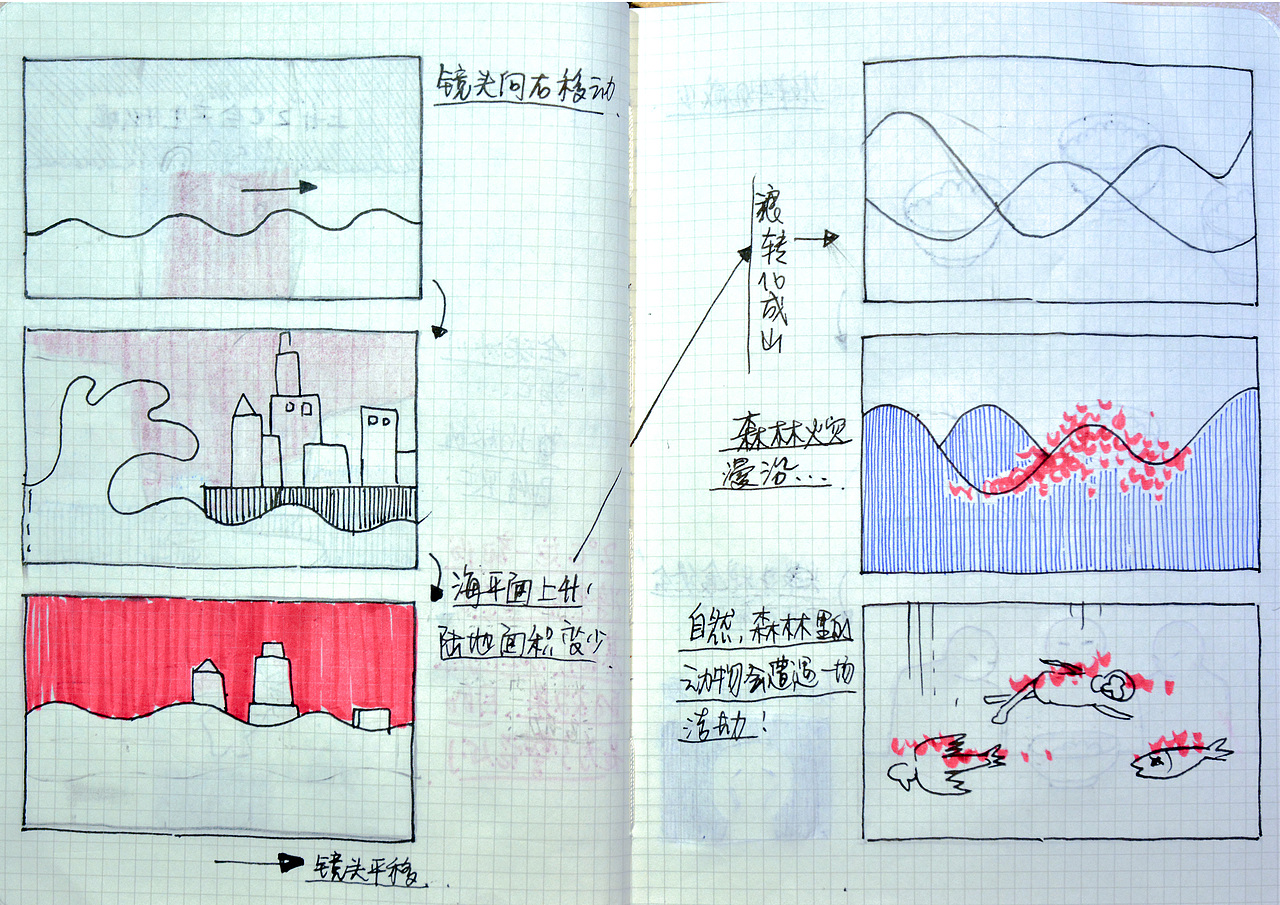 镜头向右移动.
海平面上升,
陆地面积变少.
镜头平移..
浪转化成山
森林火灾
漫沿...
自然,森林里的
动物会遭遇一场
活劫!